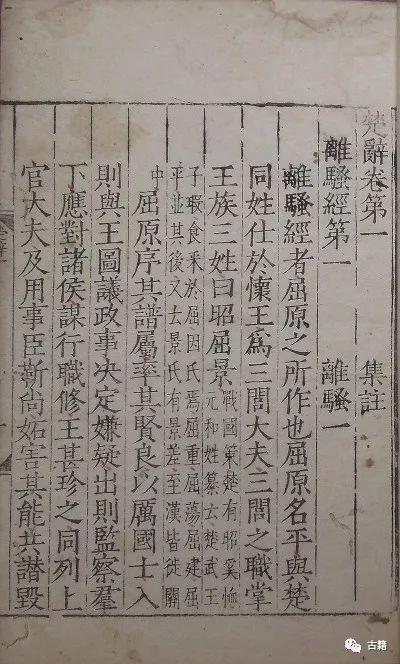 楚辭卷第一　集註
離騷經第一　離騷一
離騷經者屈原之所作也屈原名平與楚
同姓仕於懷王爲三閭大夫三閭之職掌
王族三姓曰昭屈景
戰國策楚有昭奚恤
元和姓纂云楚武王
子瑕食采於屈因氏焉屈重屈蕩屈建屈
平並其後又云景氏有景差至漢皆徙關
中　屈原序其譜屬率其賢良以厲國士入
則與王圖議政事决定嫌疑出則監察羣
下應對諸侯謀行職修王甚珍之同列上
官大夫及用事臣靳尚妬害其能共譖毀
古籍